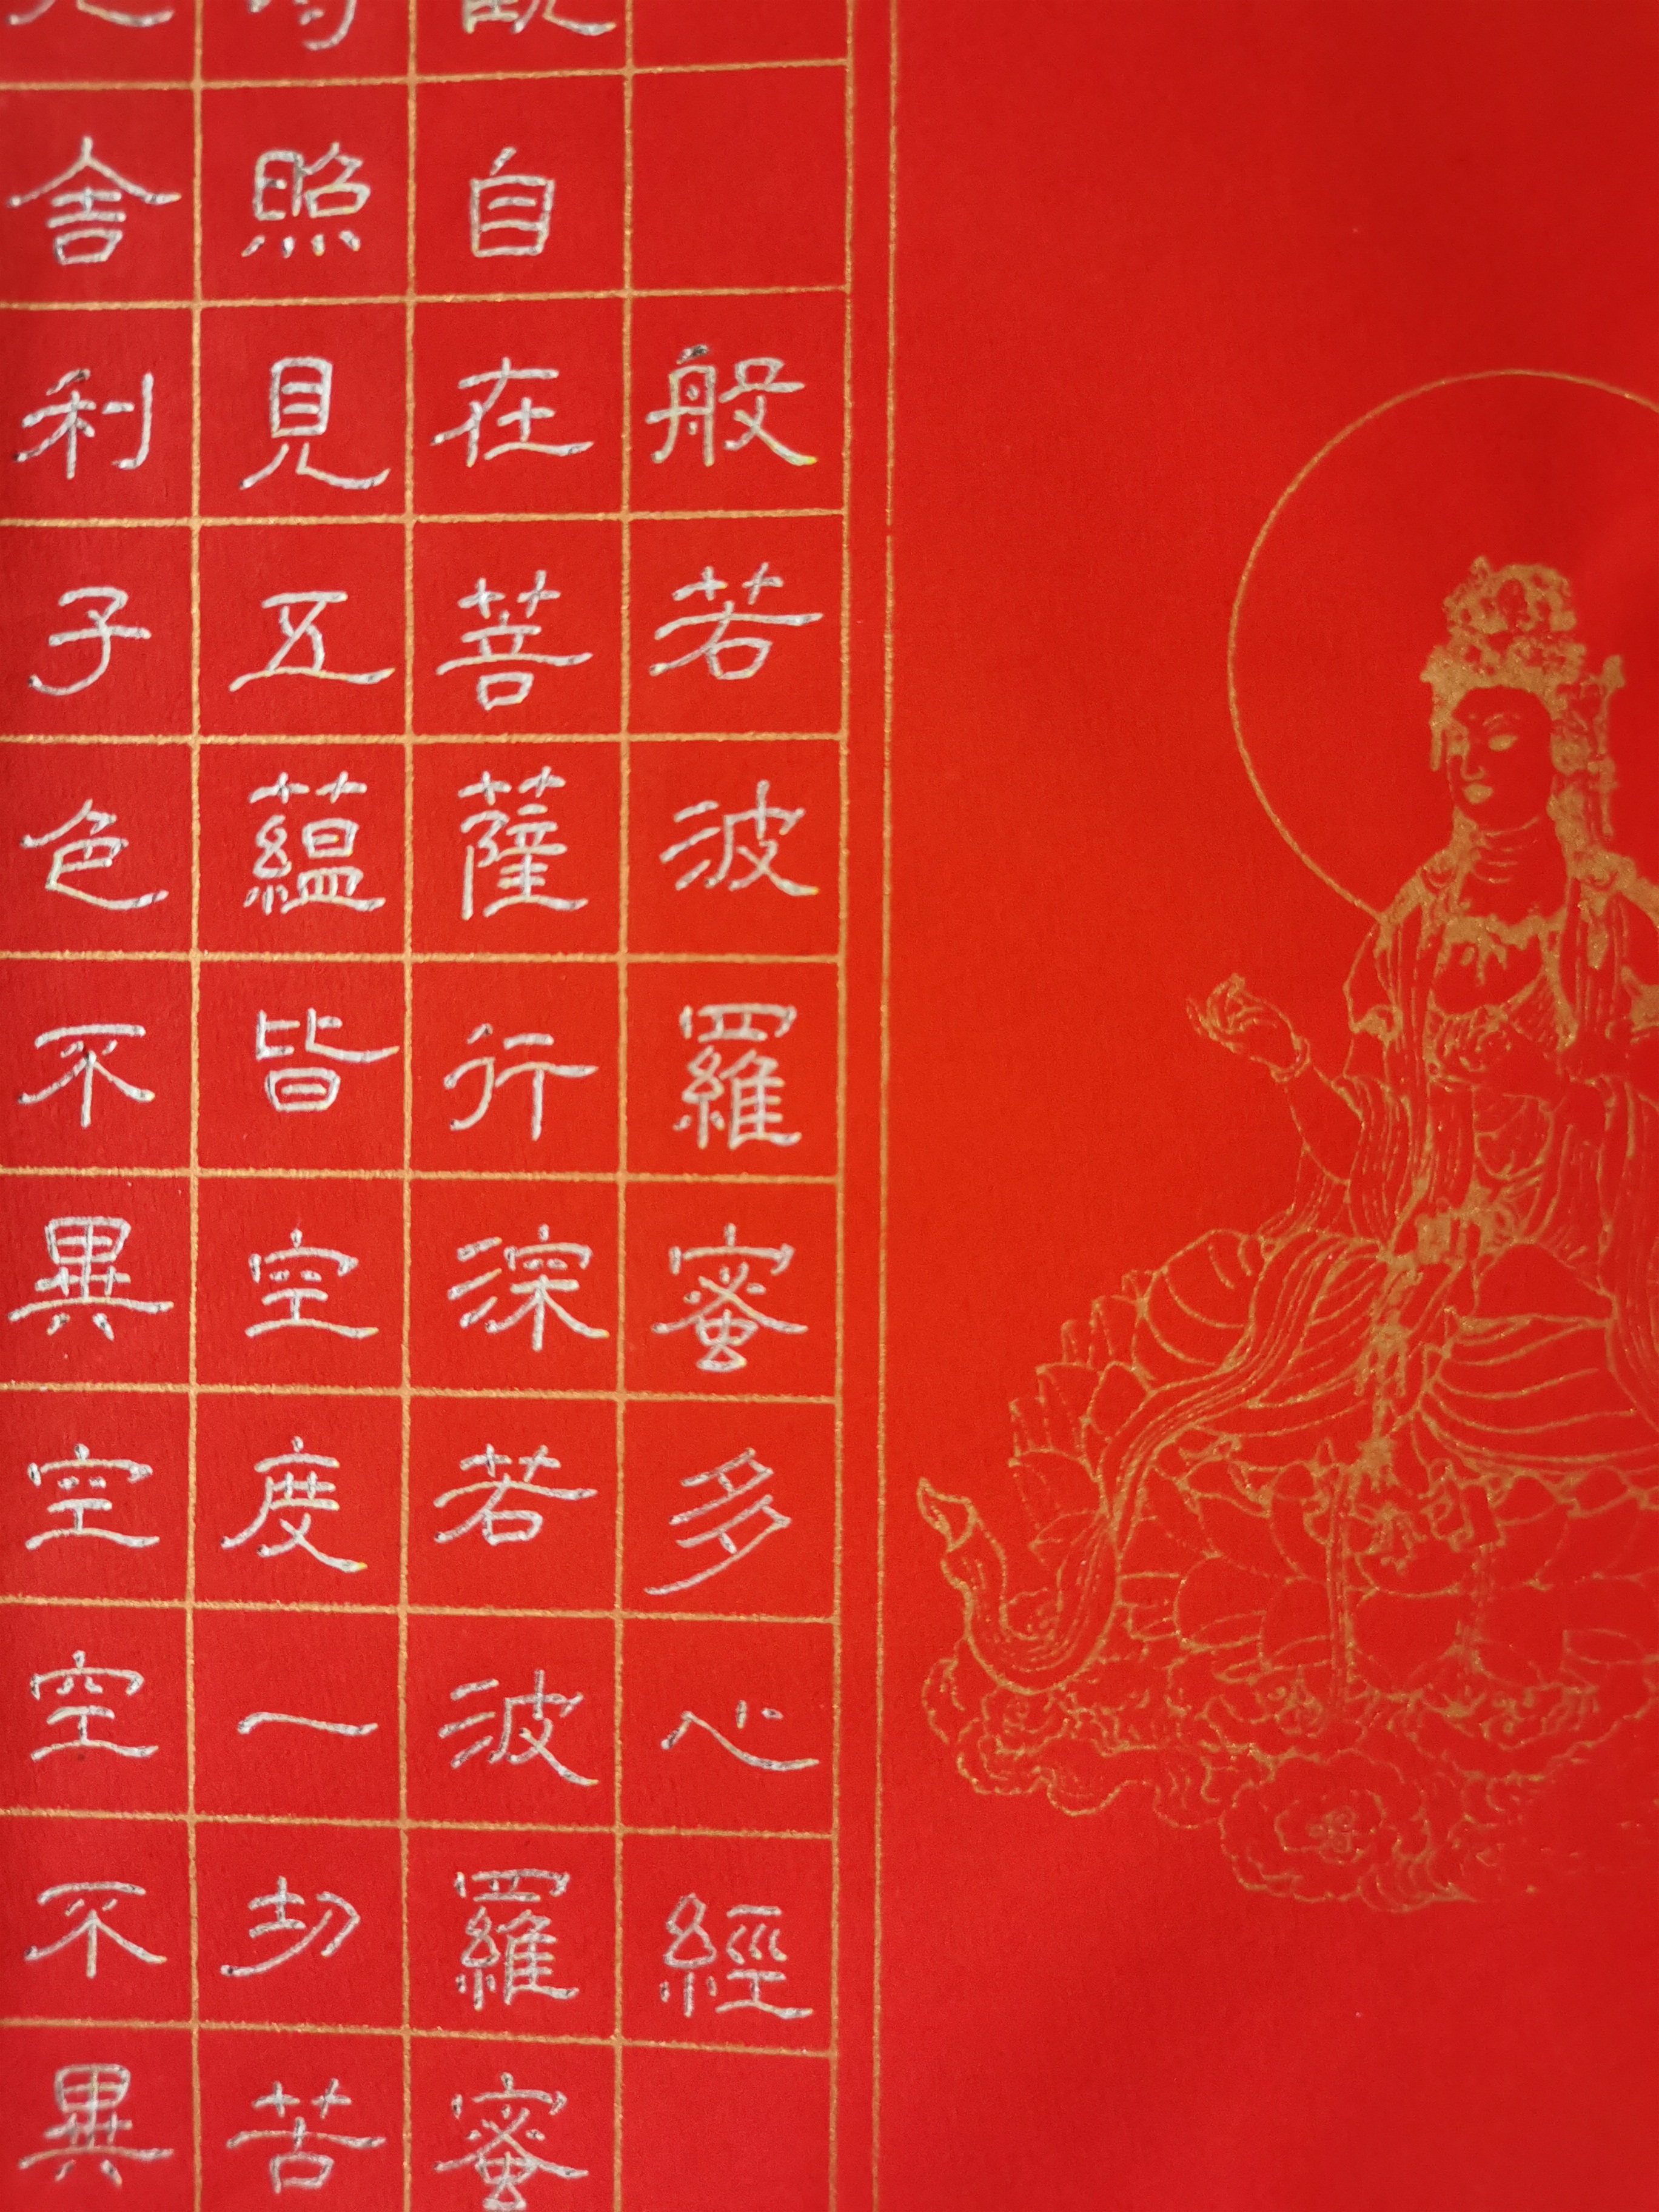 般若波羅蜜多心經
自在菩薩行深若波羅蜜
照見五蘊皆空度一切苦
舍利子色不異空空不異